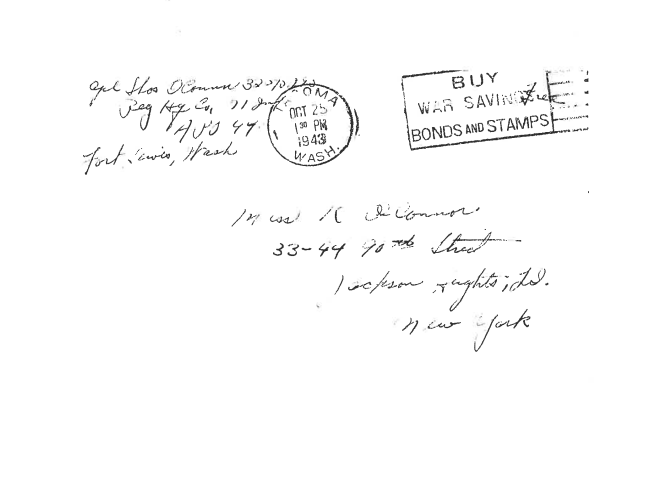 Cpl Thos O'Connor
Reg Hq Co, 71 Inf
APO 44
Fort Lewis, Wash
TACOMA
OCT 25
1 30 PM
1943
WASH.
BUY
WAR SAVINGS
BONDS AND STAMPS
Free
Miss K O'Connor
33-44 90th Street
Jackson Hights, LI.
New York